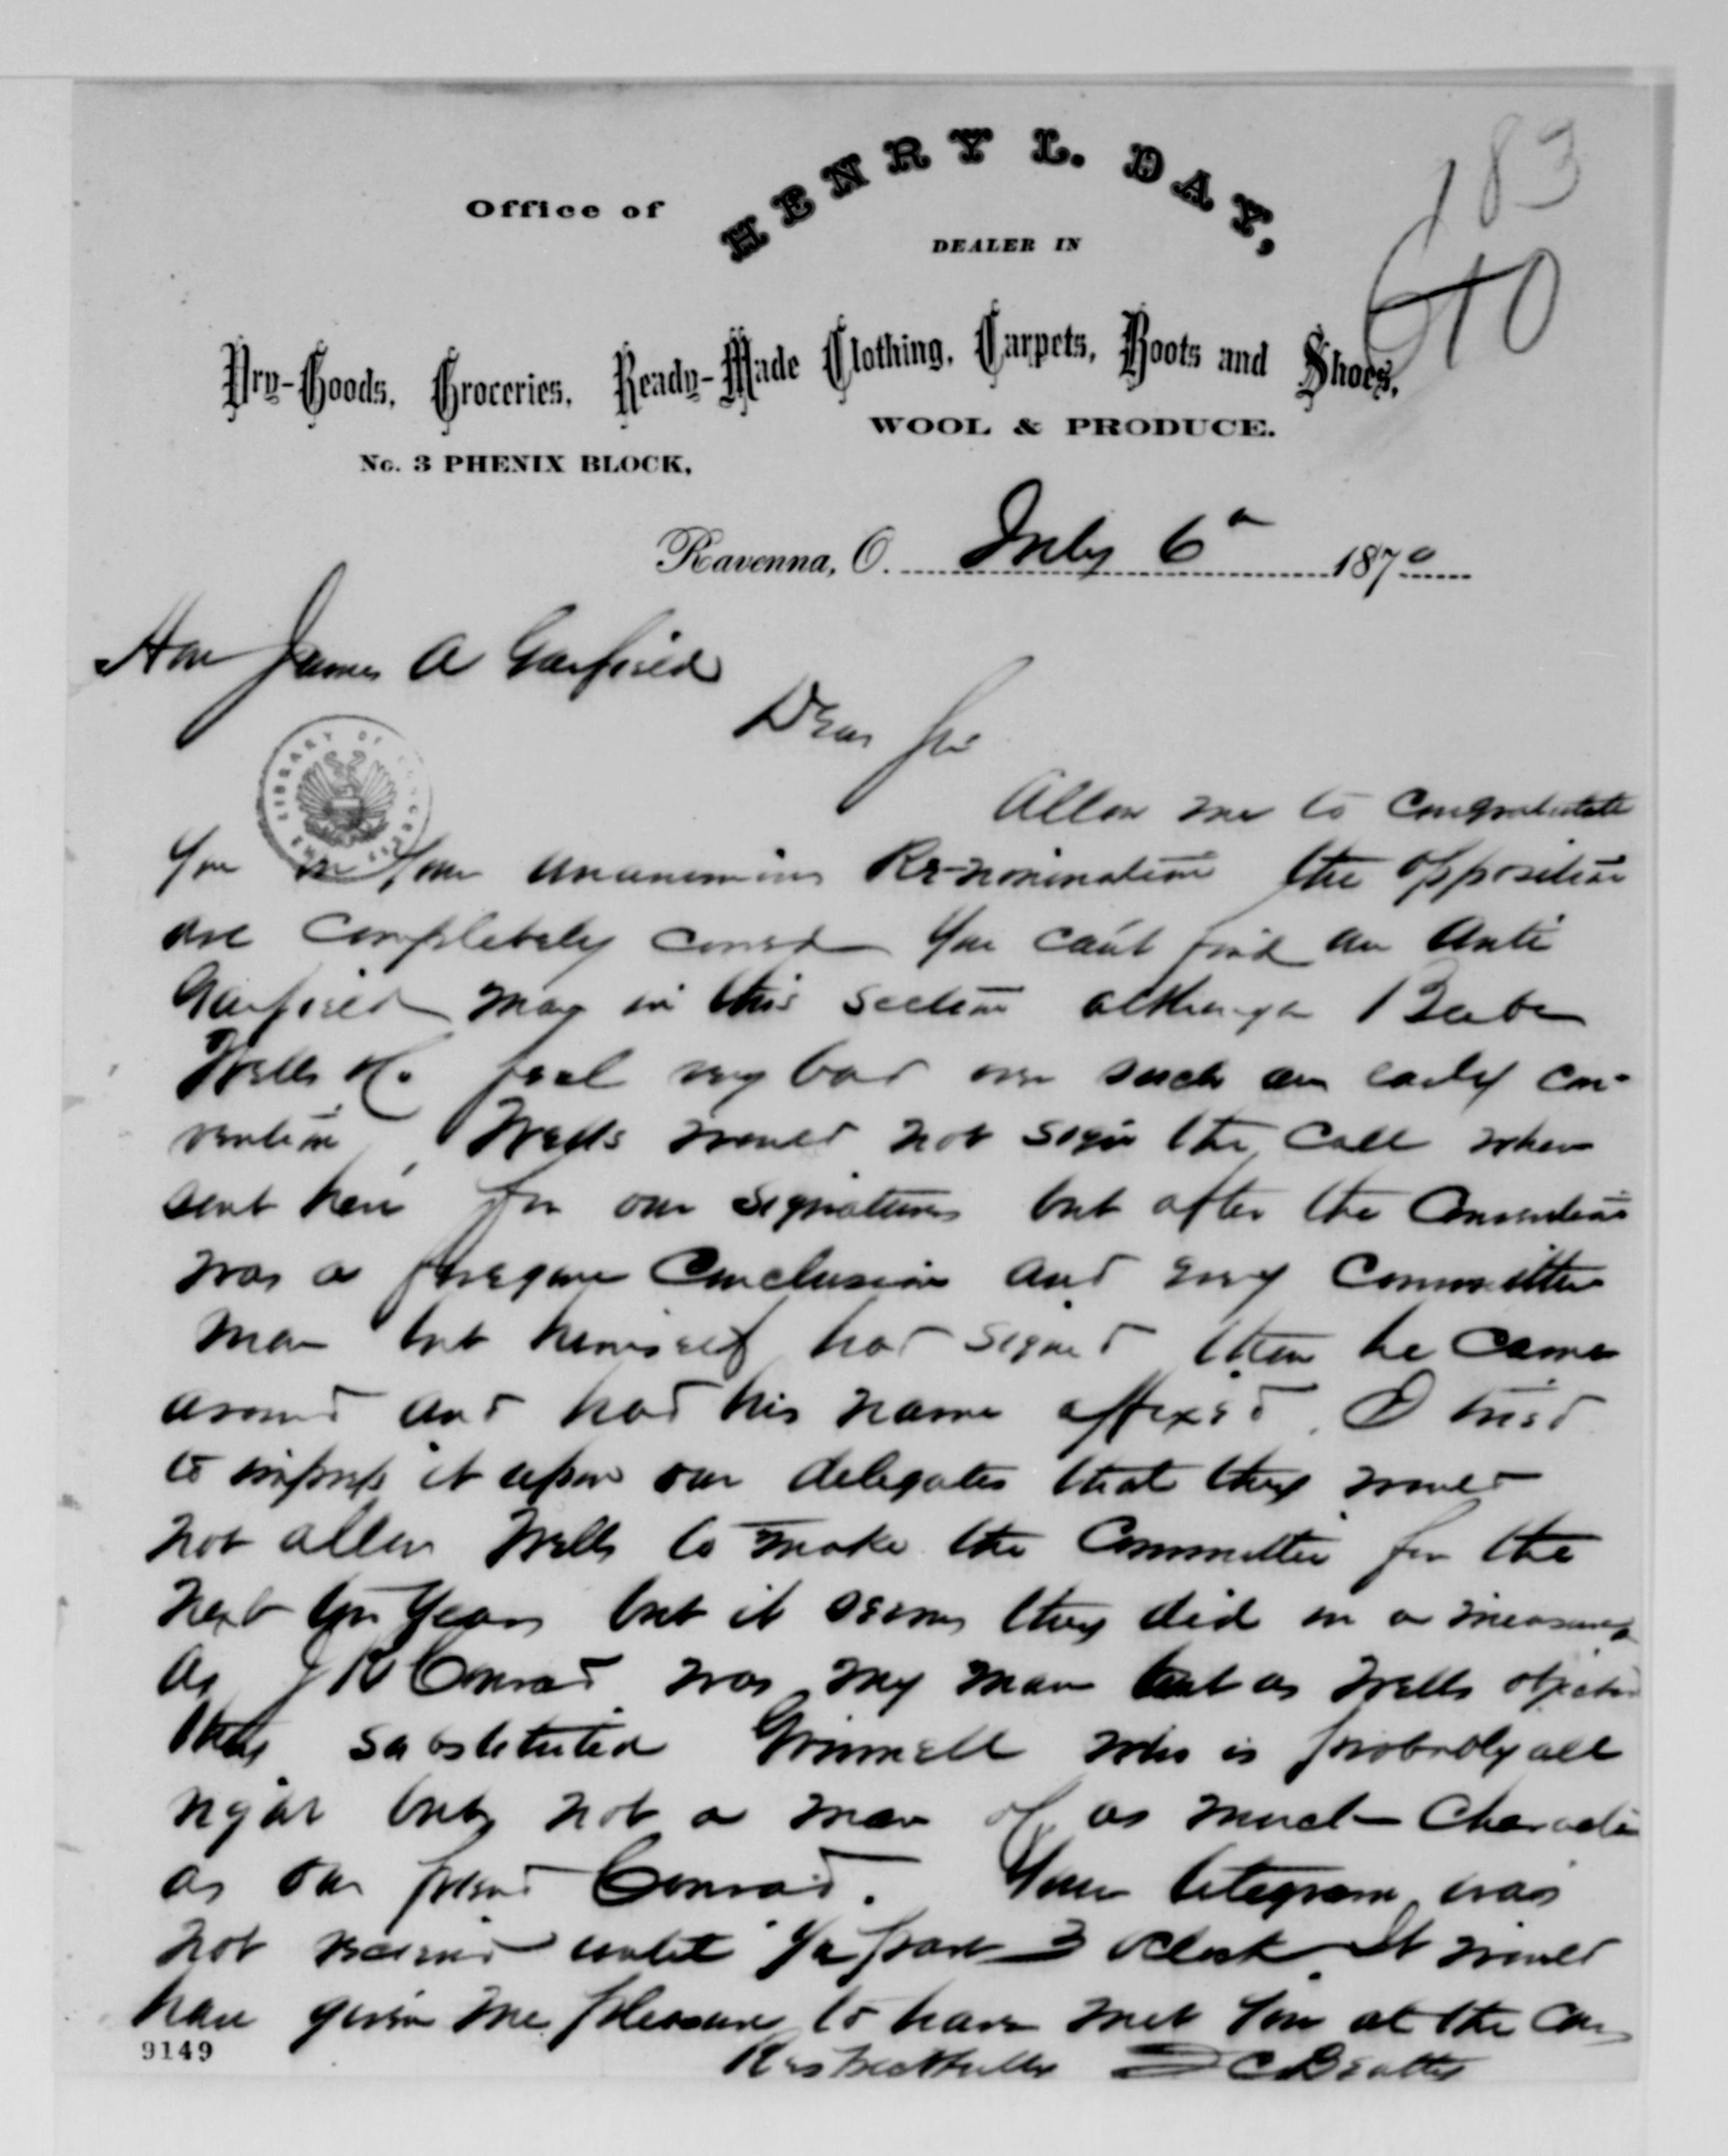 183
Office of HENRY L. DAY,
DEALER IN
Dry-Goods, Groceries, Ready-Made Clothing, Carpets, Boots and Shoes,
WOOL & PRODUCE.
No. 3 PHENIX BLOCK,
Ravenna, O. July 6th 1870
Hon James A Garfield
Dear Sir
LIBRARY OF CONGRESS
Allow me to congratulate
You on Your unanimous Re-nomination the opposition
are completely You can't find an Anti
Garfield man in this section although Beebe
Wells &c feel very bad over such an early con-
vention Wells would not sign the call when
sent here for our signatures but after the Convention
was a foregone Conclusion and every Committee
man but himself had signed then he came
around and had his name affixed. I tried
to impress it upon our delegates that they would
not allow Wells to make the Committee for the
next two Years but it seems they did in a measure
As J R Conrad was my man but as Wells objected
they substituted Grinnell who is probably all
right but not a man of as much Character
as our friend Conrad. Your telegram was
not received until ½ past 3 oclock It would
have given me pleasure to have met You at the Cars
Respectfully D C Beatty
9149